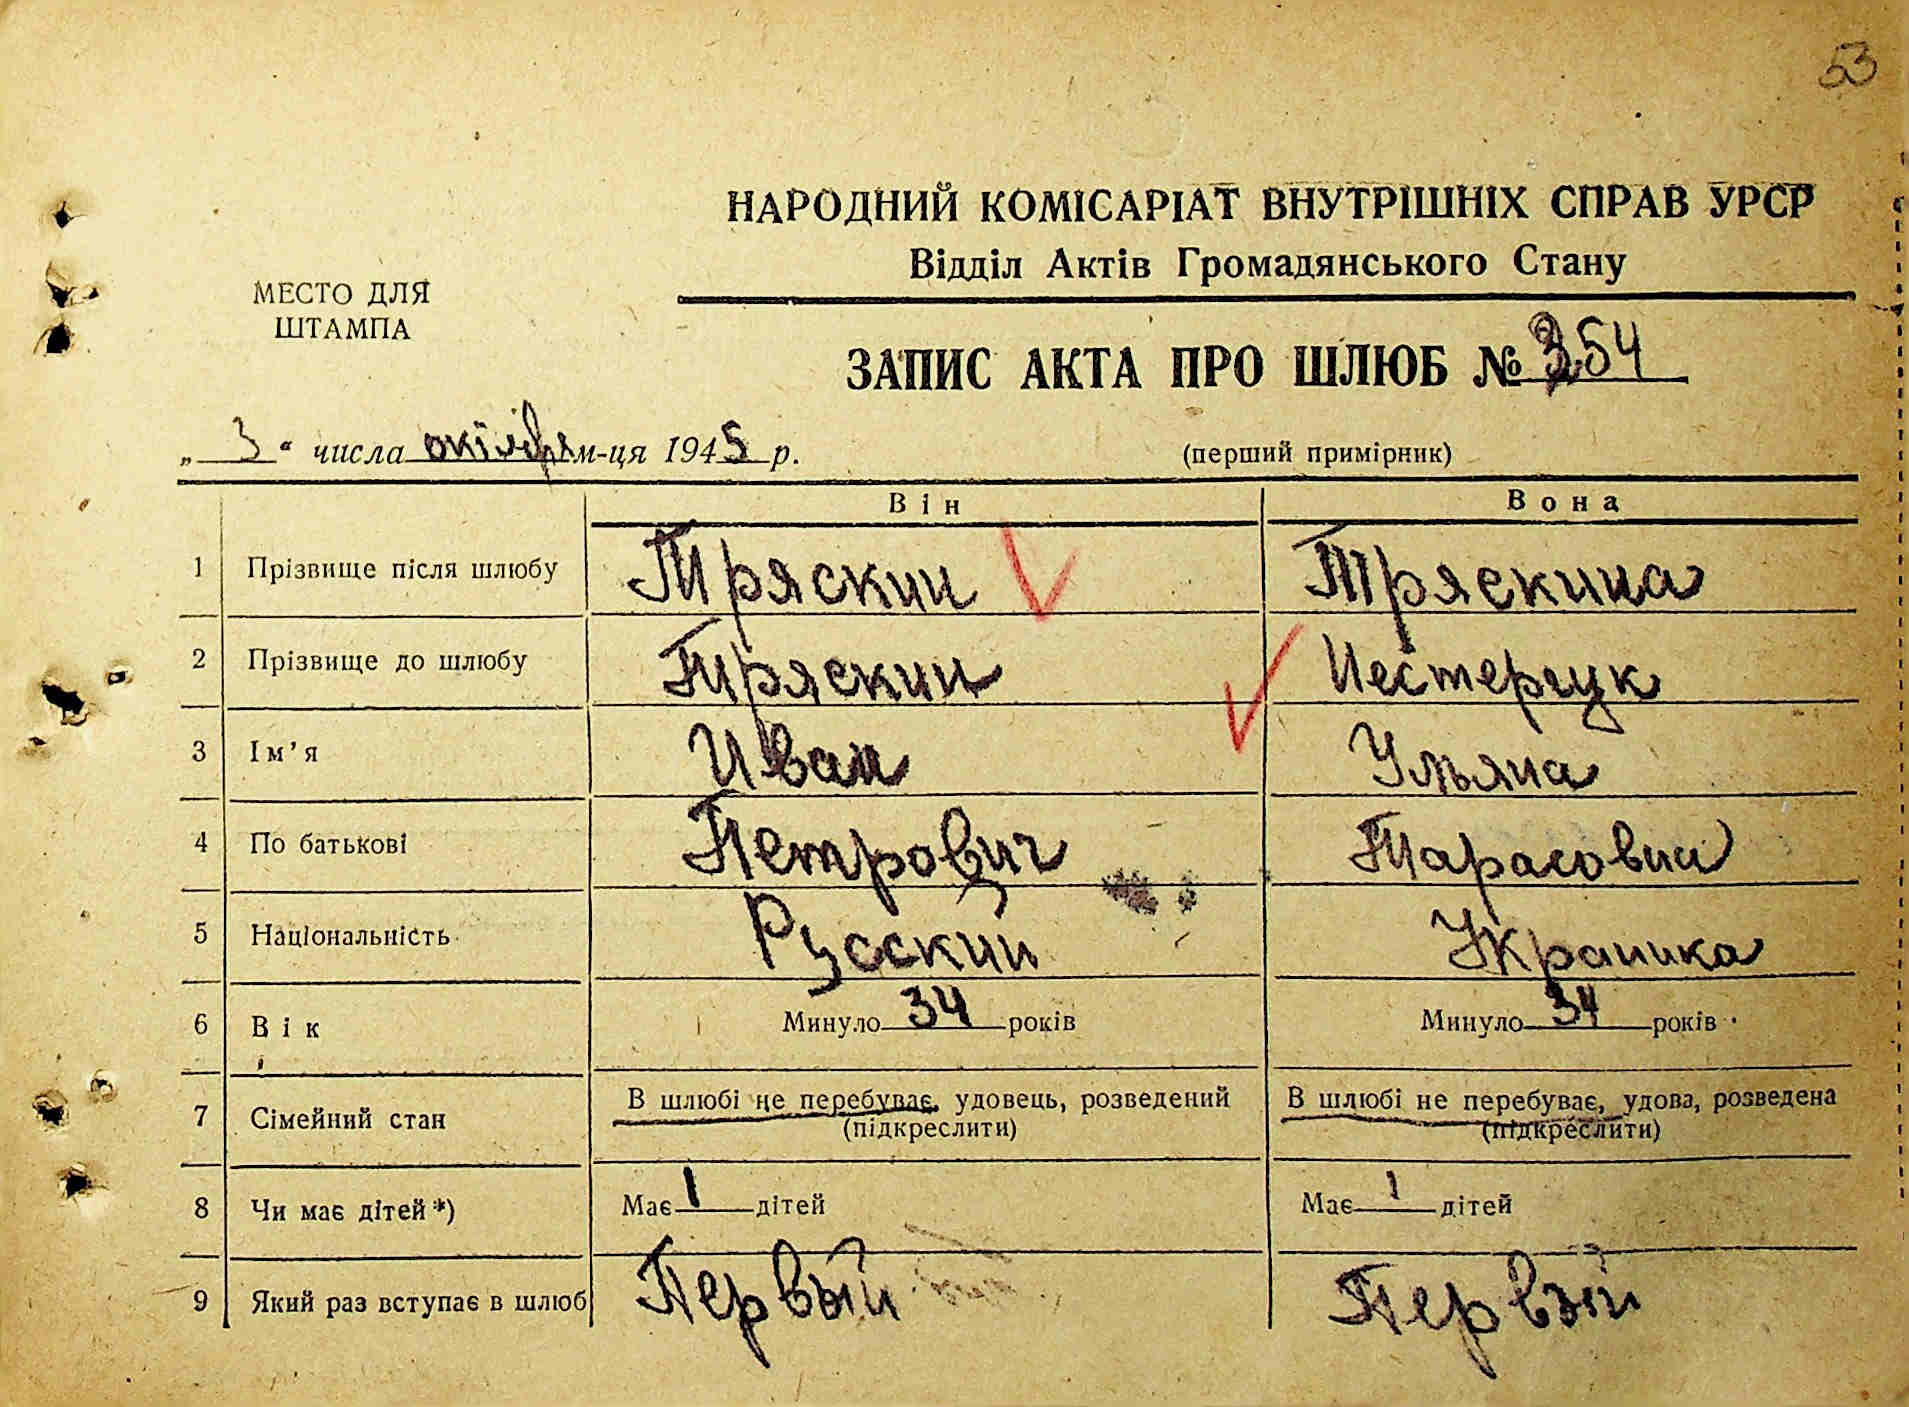 53
НАРОДНИЙ КОМІСАРІАТ ВНУТРІШНІХ СПРАВ УРСР
Відділ Актів Громадянського Стану
МЕСТО ДЛЯ
ШТАМПА
ЗАПИС АКТА ПРО ШЛЮБ № 354
„ 3 “ числа октября м-ця 1945 р.
(перший примірник)
Він Вона
1 Прізвище після шлюбу Тряскин Тряскина
2 Прізвище до шлюбу Тряскин Нестерчук
3 Ім'я Иван Ульяна
4 По батькові Петрович Тарасовна
5 Національність Русский Украинка
6 Вік Минуло 34 років Минуло 34 років
7 Сімейний стан В шлюбі не перебуває, удовець, розведений В шлюбі не перебуває, удова, розведена
(підкреслити) (підкреслити)
8 Чи має дітей *) Має 1 дітей Має 1 дітей
9 Який раз вступає в шлюб Первый Первый